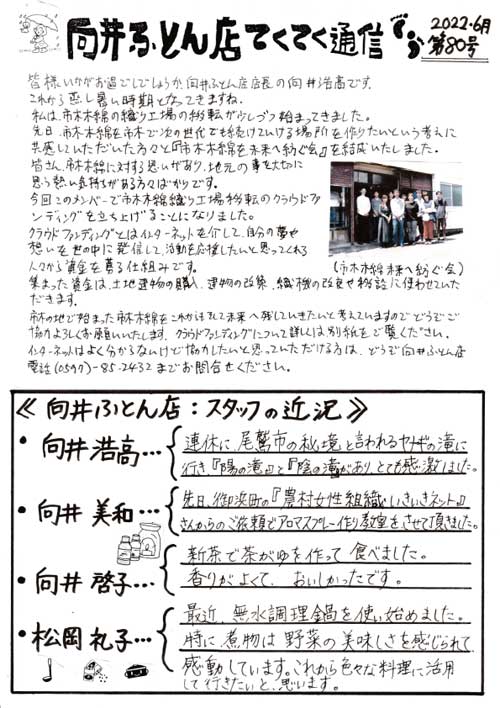 向井ふとん店てくてく通信
2022.6月
第80号
皆様いかがお過ごしでしょうか、向井ふとん店店長の向井浩高です。
これから蒸し暑い時期となってきますね。
私は、市木木綿の織り工場の移転が少しづつ始まってきました。
先日、市木木綿を市木で次の世代でも続けていける場所を作りたいという考えに
共感していただいた方々と『市木木綿を未来へ紡ぐ会』を結成いたしました。
皆さん、市木木綿に対する思いがあり、地元の事を大切に
思う熱い気持ちがある方々ばかりです。
今回このメンバーで市木木綿織り工場移転のクラウドファ
ンディングを立ち上げることになりました。
クラウドファンディングとはインターネットを介して、自分の夢や
想いを世の中に発信して、活動を応援したいと思ってくれる
人々から資金を募る仕組みです。
(市木木綿未来へ紡ぐ会)
集まった資金は、土地建物の購入、建物の改築、織機の改良や移設に使わせていた
だきます。
市木の地で始まった市木木綿をこれからもずっと未来へ残していきたいと考えていますのでどうぞご
協力よろしくお願いいたします。クラウドファンディングについて詳しくは別紙をご覧ください。
インターネットはよく分からないけど協力したいと思っていただける方は、どうぞ向井ふとん店
電話(0597)-85-2432までお問合せください。
≪向井ふとん店:スタッフの近況≫
・向井 浩高…
連休に尾鷲市の秘境と言われるヤサザの滝に
行き『陽の滝』と『陰の滝』があり、とても感激しました。
・向井 美和…
先日、御浜町の『農村女性組織いきいきネット』
さんからのご依頼でアロマスプレー作り教室をさせて頂きました。
・向井 啓子…
新茶で茶がゆを作って食べました。
香りがよくて、おいしかったです。
・松岡 礼子…
最近、無水調理鍋を使い始めました。
特に煮物は野菜の美味しさを感じられて
感動しています。これから色々な料理に活用
して行きたいと、思います。